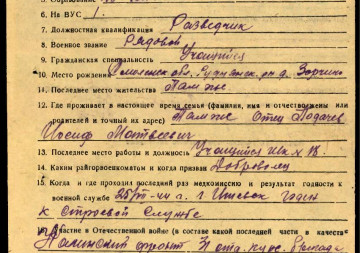 6. На ВУС 1.
7. Должностная квалификация Разведчик
8. Военное звание Рядовой
9. Гражданская специальность Учащийся
10. Место рождения Смоленск. обл. Руднянск. р-н д. Зорчино
11. Последнее место жительства Там же
12. Где проживает в настоящее время семья (фамилия, имя и отчество жены или
родителей и точный их адрес) Там же Отец
Иосиф Матвеевич
13. Последнее место работы и должность Учащийся
14. Каким райгорвоенкоматом и когда призван Доброволец
15. Когда и где проходил последний раз медкомиссию и результат годности к
военной службе г. Ижевск годен
к строевой службе
Участие в Отечественной войне (в составе какой последней части и в качестве
Калининский фронт бригада